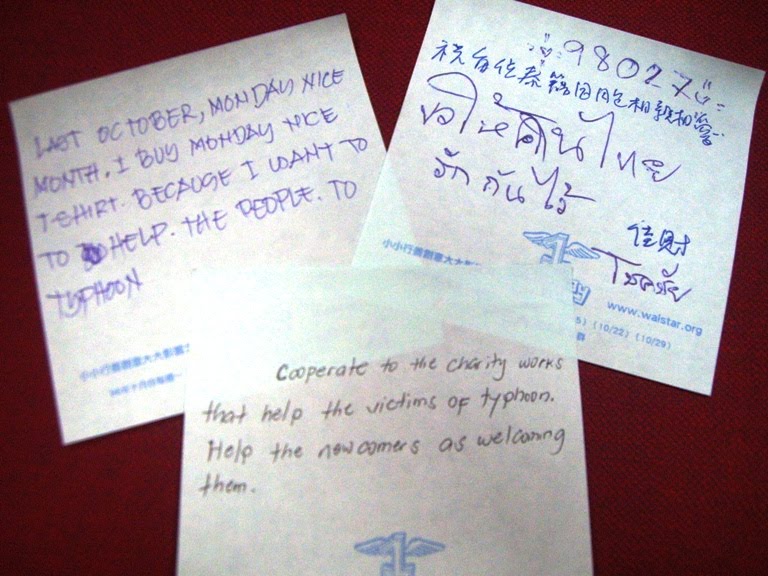 LAST OCTOBER, MONDAY NICE
MONTH. I BUY MONDAY NICE
T-SHIRT. BECAUSE I WANT TO
TO HELP. THE PEOPLE. TO
TYPHOON
小小行善創意大大影響
98027
祝各位泰籍同胞相親相愛
ขอให้คนไทย
รักกันไว้
佳財
โชคชัย
小小行善創意大大影
www.walstar.org
5) (10/22) (10/29)
Cooperate to the charity works
that help the victims of typhoon.
Help the newcomers as welcoming
them.